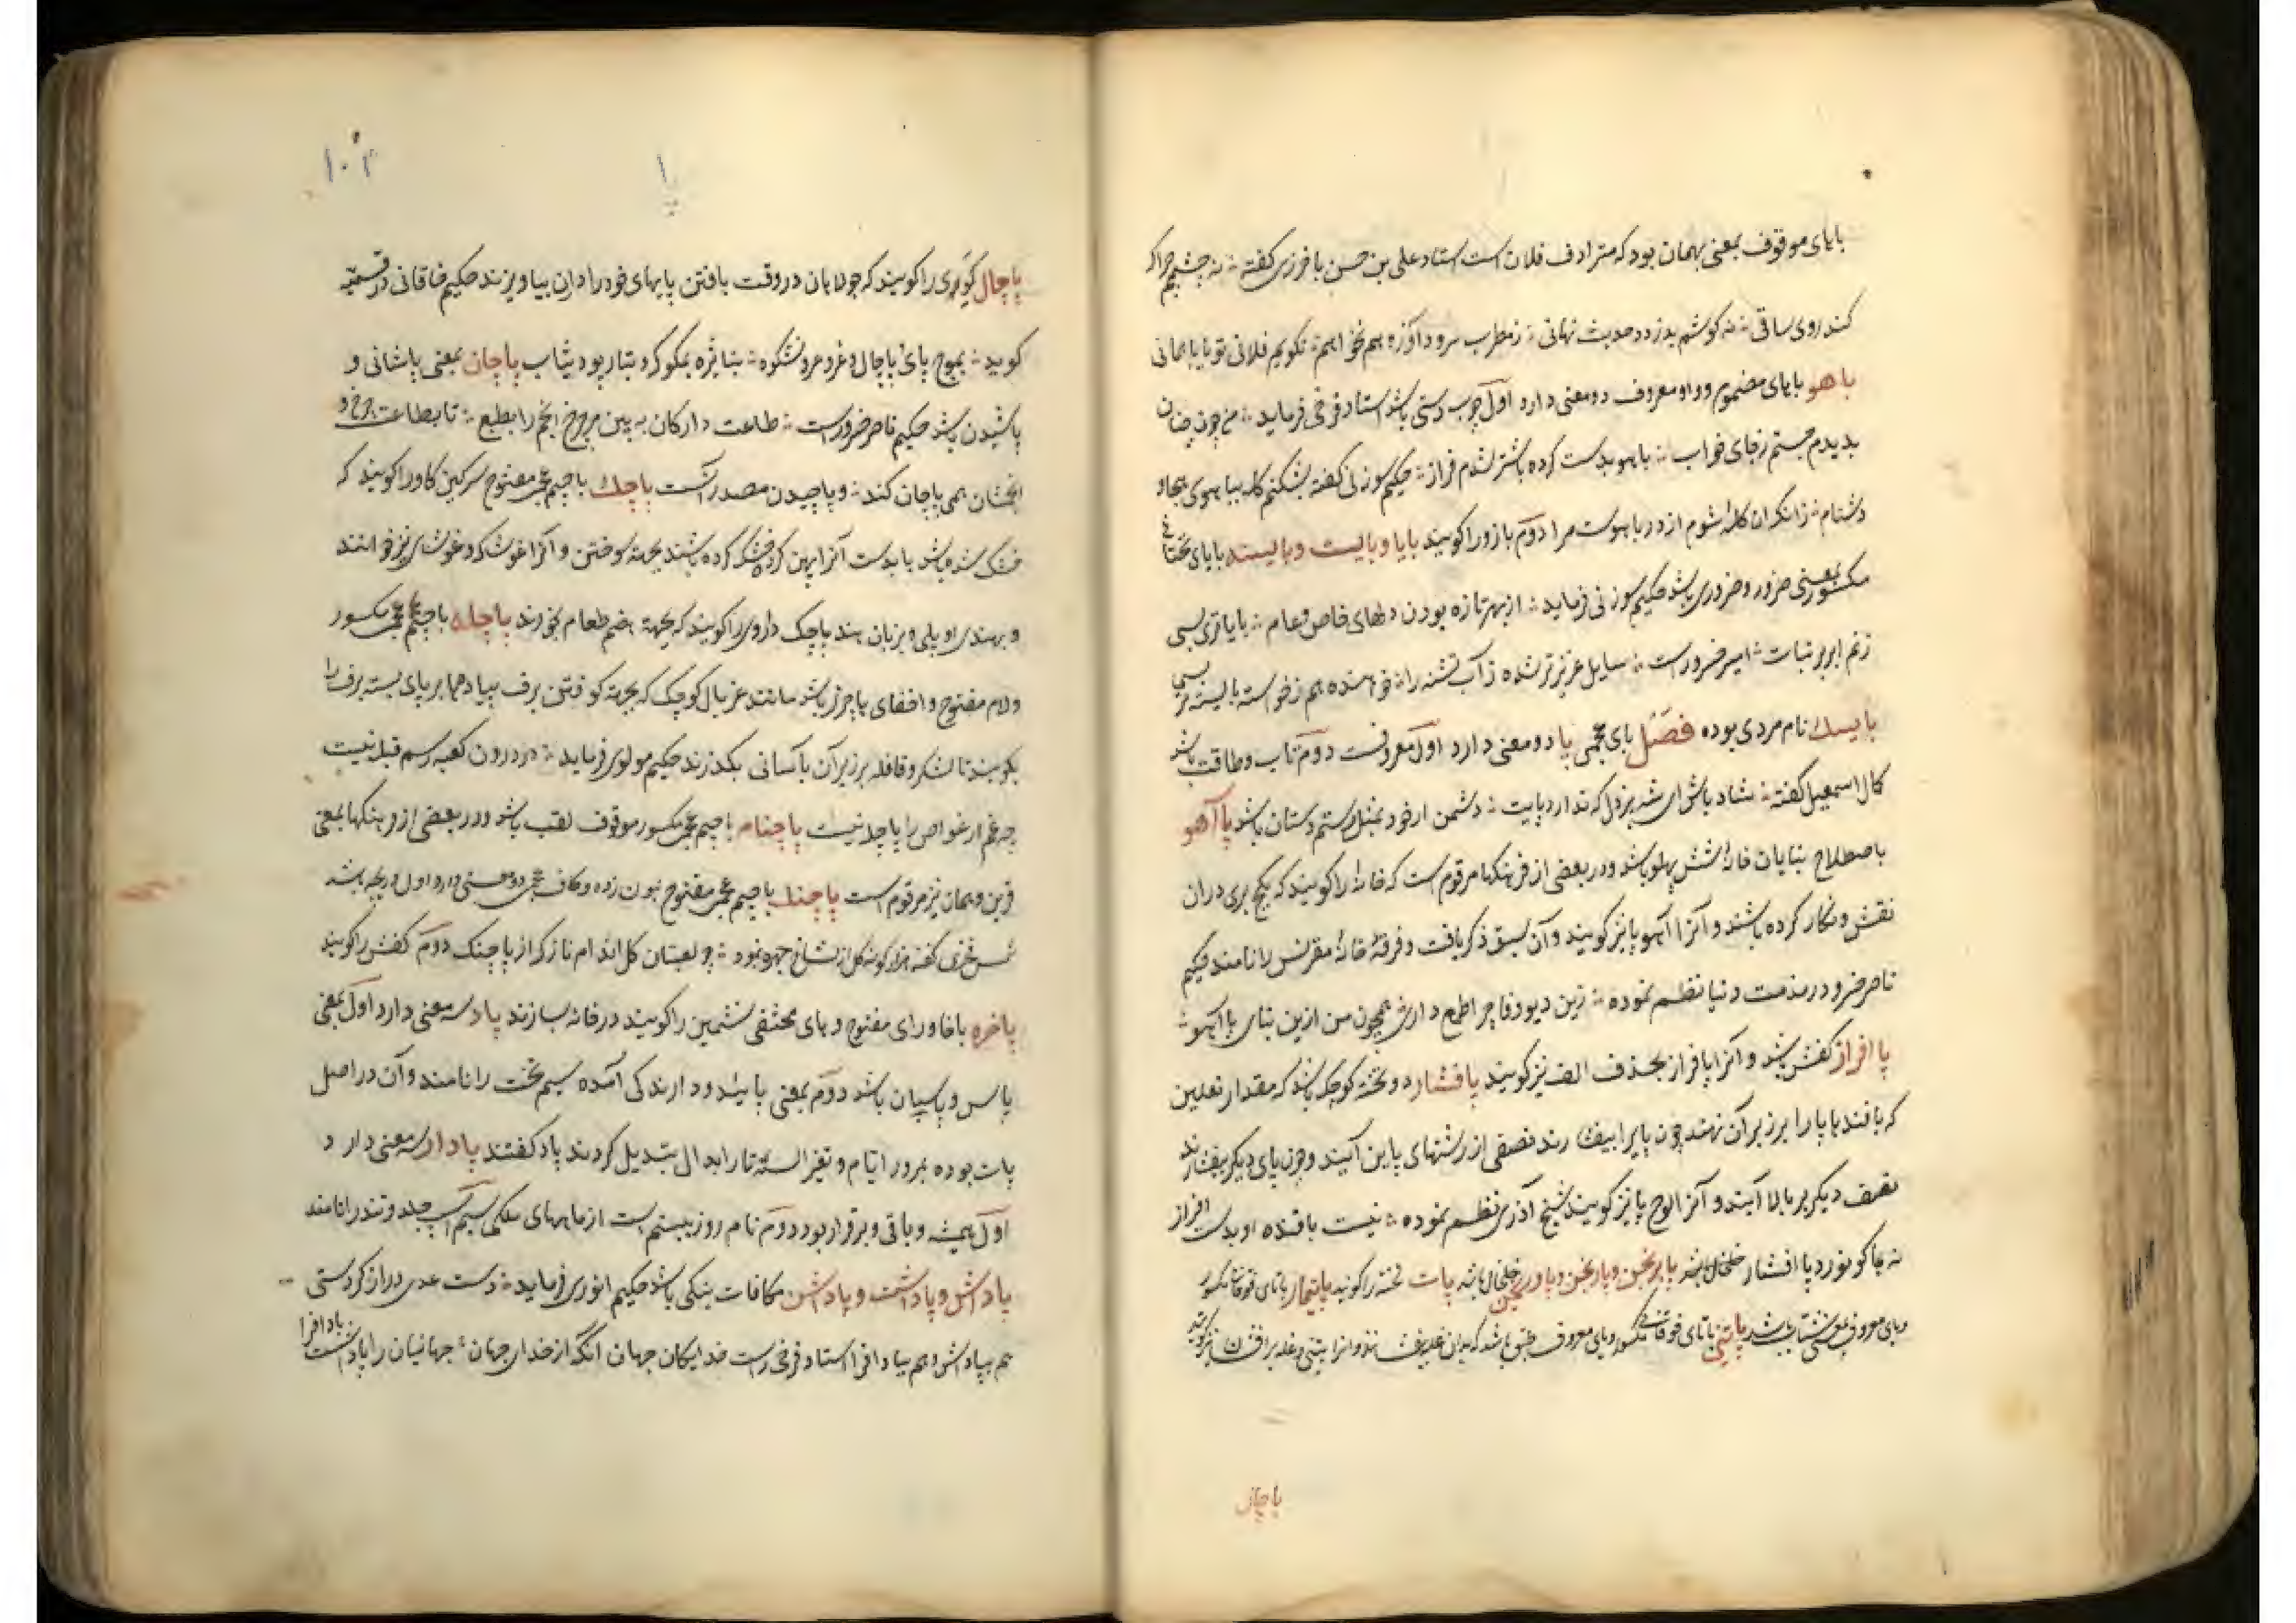 بابای موقوف بمعنی بهمان بود که مترادف فلان است استاد علی بن حسن باخرزی گفته نه چشمم چرا که
کند روی ساقی نه گوشم بدزدد حدیث نهانی ز مطرب سرود آوزه هم نخواهم نگویم فلانی تو یا باهمانی
باهو بابای مضموم و واو معروف دو معنی دارد اول چوب دستی باشد استاد فرخی فرماید من چون چنان
بدیدم جستم ز جای خواب باهو بدست کرده باشتر شدم فراز حکیم سوزنی گفته بشکنم کله بباهوی هجا و
دشنام زانکه آن کله شوم از در باهوست مرا دوم بازو را گویند بایا و بایست و بایسته بایای تحتانی
مکسور بمعنی ضرور و ضروری باشد حکیم سوزنی فرماید از بهر تازه بودن دلهای خاص و عام بایاتری بسی
ز نم ابر بر نبات امیر خسرو راست سایل عزیزتر شده ز آب تشنه را خواهنده هم ز خواسته بایسته تر بسی
بایسک نام مردی بوده فصل بای عجمی پا دو معنی دارد اول معروفست دوم تاب و طاقت باشد
کمال اسمعیل گفته شاد باش ای شه پردل که ندارد پایت دشمن ار خود بمثل رستم دستان باشد پا آهو
باصطلاح بنایان خانه شش پهلو باشد و در بعضی از فرهنگها مرقوم است که خانه را گویند که بگچ بری در آن
نقش و نگار کرده باشند و آنرا آهو پا نیز گویند و آن بسبق ذکر یافت و فرقه خانه مقرنس را نامند حکیم
ناصر خسرو در مذمت دنیا نظم نموده زین دیو وفا چرا طمع داری همچون من ازین بنای پا آهو
پا افراز کفش باشد و آنرا پافراز بحذف الف نیز گویند پا افشار دو تخته کوچک باشد که مقدار نعلین
که بافنده پا را بر زبر آن نهند چون پا را بیفشارند نصفی از رشتهای پایین آیند و چون پای دیگر بیفشارند
نصف دیگر بر بالا آیند و آنرا لوح پا نیز گویند شیخ آذری نظم نموده نیست بافنده او بدست افراز
نه بماکو نورد پا افشار پا برنجن و پارنجن و پا ورنجن خلخال باشد پات تخته را گویند پاتیمار باتای فوقانی مکسور
و یای معروف بمعنی باشد پاتنی باتای فوقانی مکسور و یای معروف طبقی باشد که بدان غله بیفشانند و آنرا بتنی و غله برافشان نیز گویند
پاچال
۱۰۲
پا
پاچال گوی را گویند که جولاهان در وقت بافتن پایهای خود را در آن بیاویزند حکیم خاقانی در قسمیه
گوید بموج پای پاچال و غرو غرو نشکوه بنایژه بمکوکرد و بتار پود بتاب پاچان بمعنی پاشانی و
پاشیدن باشد حکیم ناصر خسرو راست طلعت دار کان ببین مر چرخ انجم را بطبع تا بطاعت چرخ و
انجمشان همی پاچان کند و پاچیدن مصدر آنست پاچک باجیم عجمی مفتوح سرگین گاو را گویند که
خشک شده باشد یا بدست آنرا پهن کرده خشک کرده باشند بجهة سوختن و آنرا غوشاک و غوشای نیز خوانند
و بهندی اوپلی و بزبان هند پاچک داروی را گویند که بجهة هضم طعام بخورند پاچله باجیم عجمی مکسور
و لام مفتوح و اخفای ها چیزی باشد مانند غربال کوچک که بجهة کوفتن برف پیادها بر پای بسته برف را
بکوبند تا لشکر و قافله بر زبر آن بآسانی بگذرند حکیم مولوی فرماید در درون کعبه رسم قبله نیست
چه غم ار غواص را پاچله نیست پاچنامه باجیم عجمی مکسور موقوف لقب باشد و در بعضی از فرهنگها بمعنی
قرین و همان نیز مرقوم است پاچنگ باجیم عجمی مفتوح بنون زده و کاف عجمی دو معنی دارد اول دریچه باشد
شمس فخری گفته هزار گونه گل از شاخ چهره نمود چو لعبتان گل اندام نازک از پاچنگ دوم کفش را گویند
پاخره باخا و رای مفتوح و های مختفی نشیمن را گویند در خانه بسازند پاد سه معنی دارد اول بمعنی
پاس و پاسبان باشد دوم بمعنی پاینده و دارندگی آمده سیم تخت را نامند و آن در اصل
پات بوده بمرور ایام و تغیر السنه تا را بدال تبدیل کردند پاد گفتند پادار سه معنی دارد
اول همیشه و باقی و برقرار بود دوم نام روز بیستم است از ماههای ملکی سیم اسپ جلد و تند را نامند
پاداش و پاداشت و پاداشن مکافات نیکی باشد حکیم انوری فرماید دست عدل دراز کردستی
هم بپاداش و هم ببادافرا استاد فرخی راست خدایگان جهان آنکه از خدای جهان جهانیان را پاداشت
بادافرا